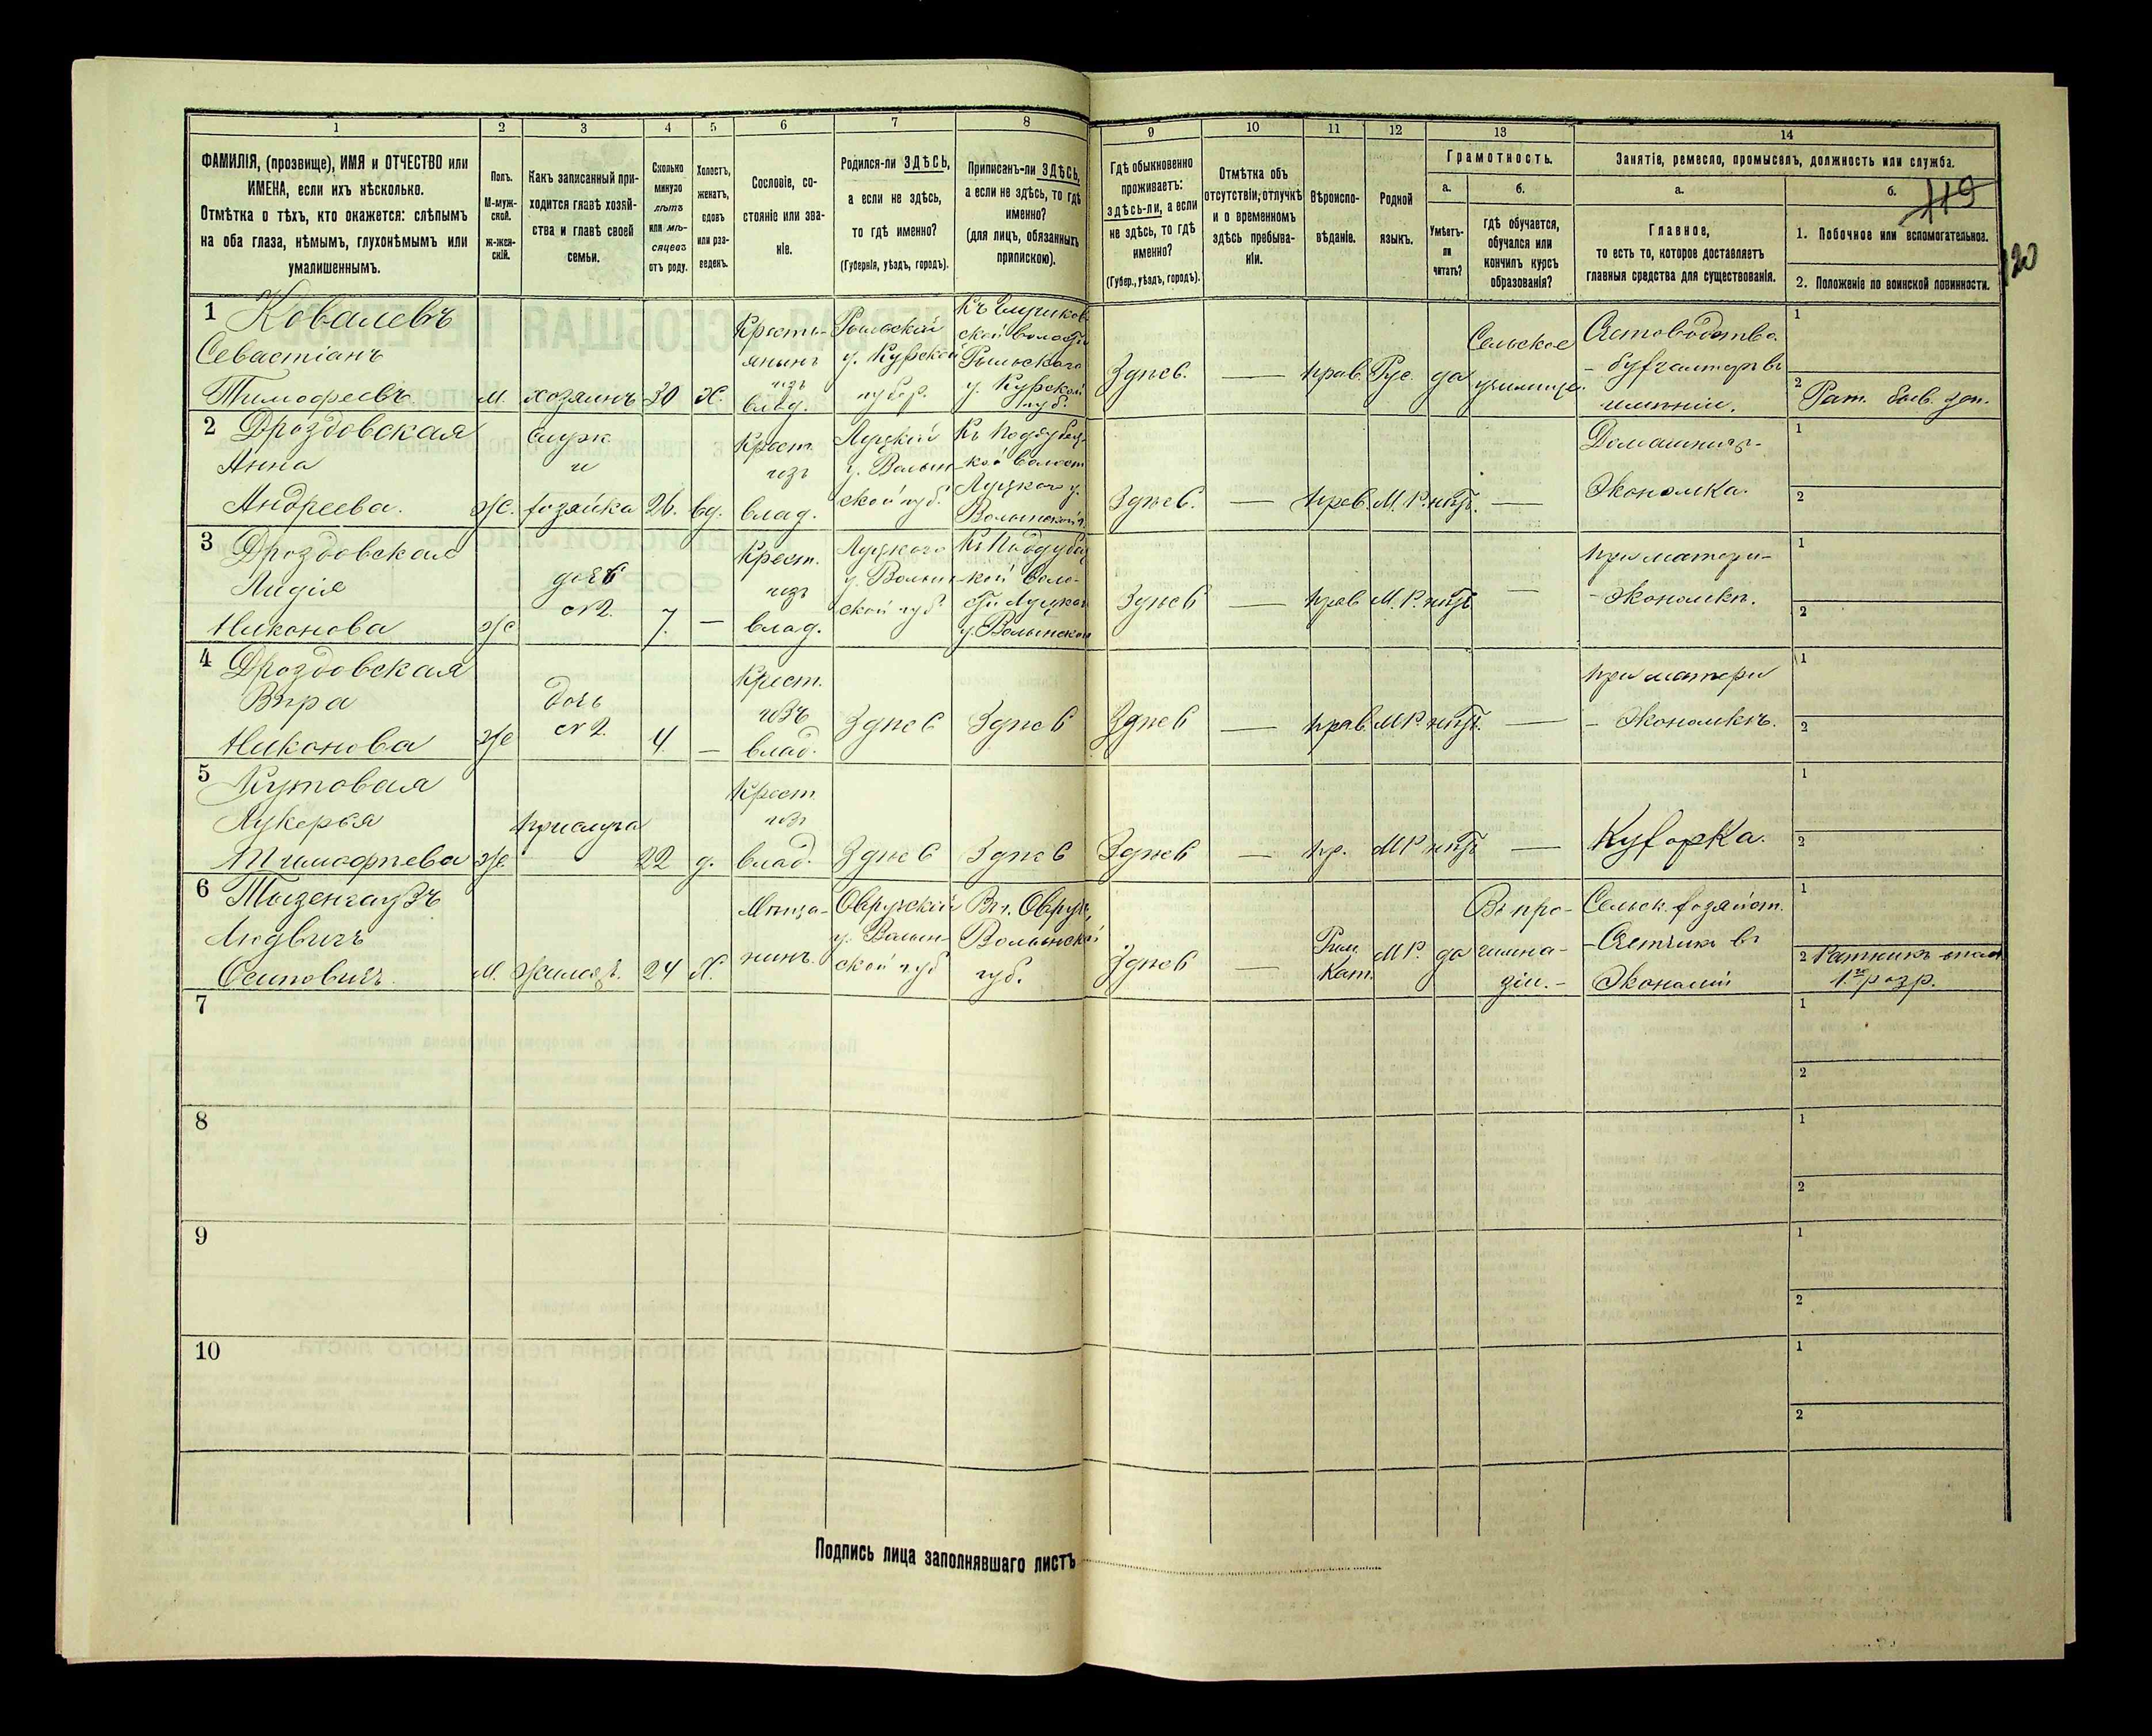 1 2 3 4 5 6 7 8 9 10 11 12 13 14
ФАМИЛІЯ, (прозвище), ИМЯ и ОТЧЕСТВО или
ИМЕНА, если ихъ нѣсколько.
Отмѣтка о тѣхъ, кто окажется: слѣпымъ
на оба глаза, нѣмымъ, глухонѣмымъ или
умалишеннымъ.
Полъ.
М-муж-
ской.
ж-жен-
скій.
Какъ записанный при-
ходится главѣ хозяй-
ства и главѣ своей
семьи.
Сколько
минуло
лѣтъ
или мѣ-
сяцевъ
отъ роду.
Холостъ,
женатъ,
вдовъ
или раз-
веденъ.
Сословіе, со-
стояніе или зва-
ніе.
Родился-ли ЗДѢСЬ,
а если не здѣсь,
то гдѣ именно?
(Губернія, уѣздъ, городъ).
Приписанъ-ли ЗДѢСЬ,
а если не здѣсь, то гдѣ
именно?
(для лицъ, обязанныхъ
припискою).
Гдѣ обыкновенно
проживаетъ:
здѣсь-ли, а если
не здѣсь, то гдѣ
именно?
(Губер., уѣздъ, городъ).
Отмѣтка объ
отсутствіи, отлучкѣ
и о временномъ
здѣсь пребыва-
ніи.
Вѣроиспо-
вѣданіе.
Родной
языкъ.
Грамотность.
а. б.
Умѣетъ-
ли
читать?
Гдѣ обучается,
обучался или
кончилъ курсъ
образованія?
Занятіе, ремесло, промыселъ, должность или служба.
а. б.
119
120
Главное,
то есть то, которое доставляетъ
главныя средства для существованія.
1. Побочное или вспомогательное.
2. Положеніе по воинской повинности.
1 Ковалевъ
Севастіанъ
Тимофеевъ
м.
хозяинъ
30
Х.
Кресть-
янинъ
изъ
влад.
Рыльскій
у. Курской
губер.
Рыльскаго
у. Курской
губ.
Здѣсь.
—
прав.
Рус.
да
Сельское
училище.
Счетоводство
- бухгалтеръ въ
имѣніи.
1
2 Рат.
2 Дроздовская
Анна
Андреева.
ж.
хозяйка
26.
вд.
Крест.
изъ
влад.
Луцкій
у. Волын-
ской губ.
Луцкаго у.
Волынской г.
Здѣсь.
—
прав.
М. Р.
нѣтъ.
—
Домашняя-
Экономка.
1
2
3 Дроздовская
Лидія
Никонова
ж
дочь
№2.
7.
—
Крест.
изъ
влад.
Луцкаго
у. Волын-
ской губ.
кой воло-
сти Луцкаго
у. Волынской
Здѣсь
—
прав
М. Р.
нѣтъ
—
при матери-
- Экономкѣ.
1
2
4 Дроздовская
Вѣра
Никонова
ж
дочь
№2.
4.
—
Крест.
изъ
влад.
Здѣсь
Здѣсь
Здѣсь
—
прав.
М Р.
нѣтъ.
—
при матери
- Экономкѣ.
1
2
5 Кутовая
Лукерья
Тимофѣева
ж
прислуга
22
д.
Крест
изъ
влад.
Здѣсь
Здѣсь
Здѣсь
—
пр.
М Р
нѣтъ
—
Кухарка.
1
2
6 Тызенгаузъ
Людвигъ
Осиповичъ.
м.
Жилецъ.
24
Х.
Мѣща-
нинъ.
Овручскій
у. Волын-
ской губ
Въ г. Овручъ,
Волынской
губ.
Здѣсь
—
Рим.
Кат.
М Р.
да
Въ про-
гимна-
зіи. -
Сельск. хозяйст.
- Счетчикъ въ
Экономіи
1
2 Ратникъ
1го разр.
7
1
2
8
1
2
9
1
2
10
1
2
Подпись лица заполнявшаго листъ